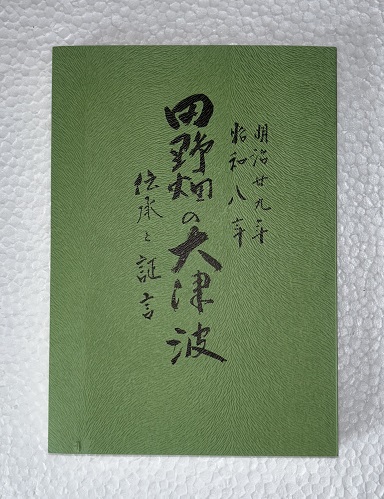 明治廿九年
昭和八年
田野畑の大津波
伝承と証言